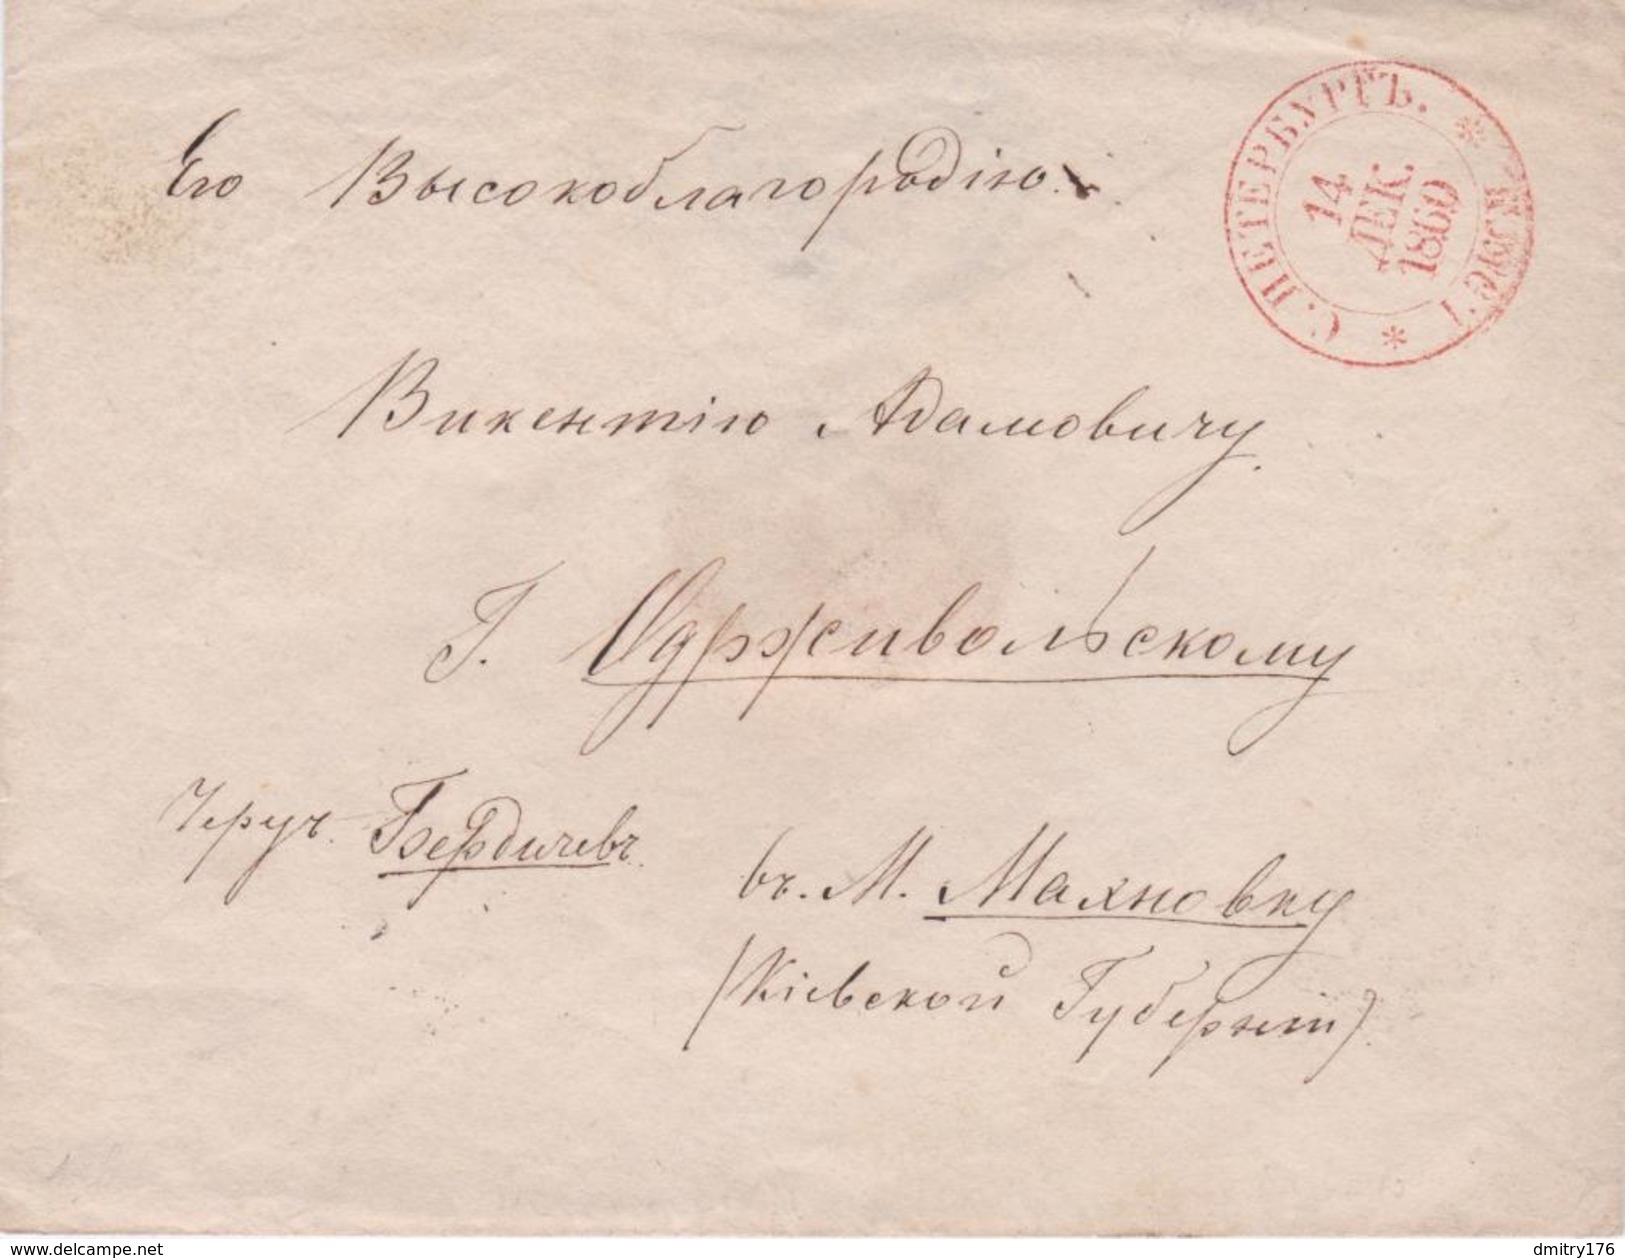 Его Высокоблагородію
С. ПЕТЕРБУРГЪ.
14
ДЕК.
1860
Викентію Адамовичу
Г. Одрживольскому
Чрезъ Бердичевъ
въ М. Махновку
(Кіевской Губерніи)
www.delcampe.net
dmitry176